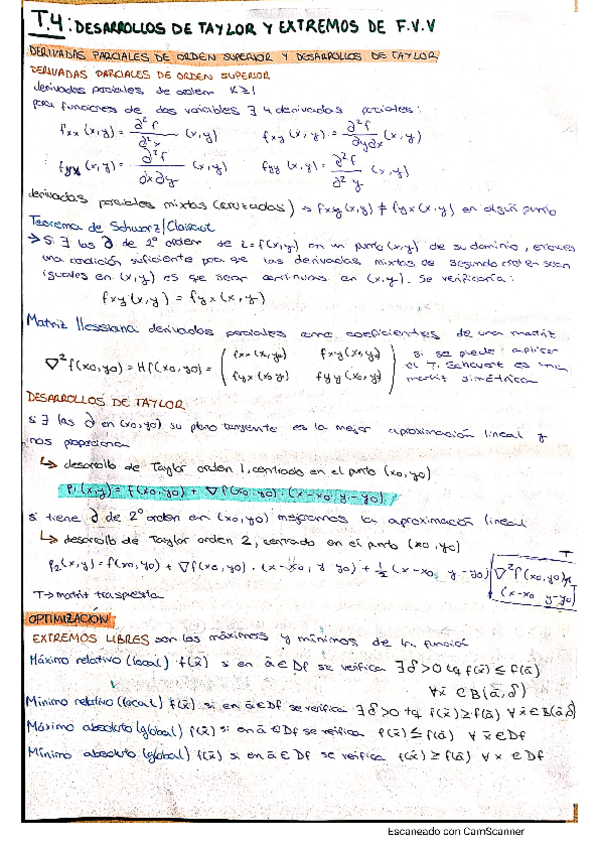 T.4: DESARROLLOS DE TAYLOR Y EXTREMOS DE F.V.V
DERIVADAS PARCIALES DE ORDEN SUPERIOR Y DESARROLLOS DE TAYLOR
DERIVADAS PARCIALES DE ORDEN SUPERIOR
derivadas parciales de orden K≥1
para funciones de dos variables ∃ 4 derivadas parciales:
fxx (x,y) = ∂²f/∂²x (x,y) fxy (x,y) = ∂²f/∂y∂x (x,y)
fyx (x,y) = ∂²f/∂x∂y (x,y) fyy (x,y) = ∂²f/∂²y (x,y)
derivadas parciales mixtas (cruzadas) → fxy(x,y) ≠ fyx(x,y) en algún punto
Teorema de Schwarz/Clairaut
→ Si ∃ las ∂ de 2º orden de z=f(x,y) en un punto (x,y) de su dominio, entonces
una condición suficiente para que las derivadas mixtas de segundo orden sean
iguales en (x,y) es que sean continuas en (x,y). Se verificaría:
fxy(x,y) = fyx(x,y)
Matriz Hessiana derivadas parciales como coeficientes de una matriz
∇²f(x0,y0) = Hf(x0,y0) = ( fxx(x0,y0) fxy(x0,y0) si se puede aplicar
fyx(x0,y0) fyy(x0,y0) ) el T. Schwartz es una
matriz simétrica
DESARROLLOS DE TAYLOR
si ∃ las ∂ en (x0,y0) su plano tangente es la mejor aproximación lineal y
nos proporciona
↳ desarrollo de Taylor orden 1, centrado en el punto (x0,y0)
P1(x,y) = f(x0,y0) + ∇f(x0,y0) · (x-x0, y-y0)
si tiene ∂ de 2º orden en (x0,y0) mejoramos la aproximación lineal
↳ desarrollo de Taylor orden 2, centrado en el punto (x0,y0)
P2(x,y) = f(x0,y0) + ∇f(x0,y0) · (x-x0, y-y0) + 1/2 (x-x0, y-y0) ∇²f(x0,y0) (x-x0 y-y0) T
T → matriz traspuesta
OPTIMIZACIÓN
EXTREMOS LIBRES son los máximos y mínimos de la función
Máximo relativo (local) f(x̄) si en ā∈Df se verifica ∃δ>0 tq f(x̄) ≤ f(ā)
∀x̄ ∈B(ā,δ)
Mínimo relativo (local) f(x̄) si en ā∈Df se verifica ∃δ>0 tq f(x̄)≥f(ā) ∀x̄∈B(ā,δ)
Máximo absoluto (global) f(x̄) si en ā∈Df se verifica f(x̄) ≤ f(ā) ∀ x̄∈Df
Mínimo absoluto (global) f(x̄) si en ā∈Df se verifica f(x̄) ≥ f(ā) ∀ x ∈ Df
Escaneado con CamScanner